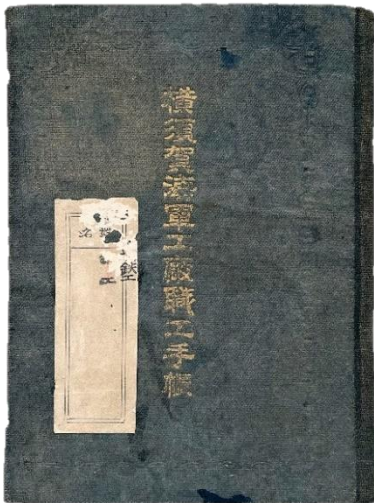 横須賀海軍工廠職工手帳